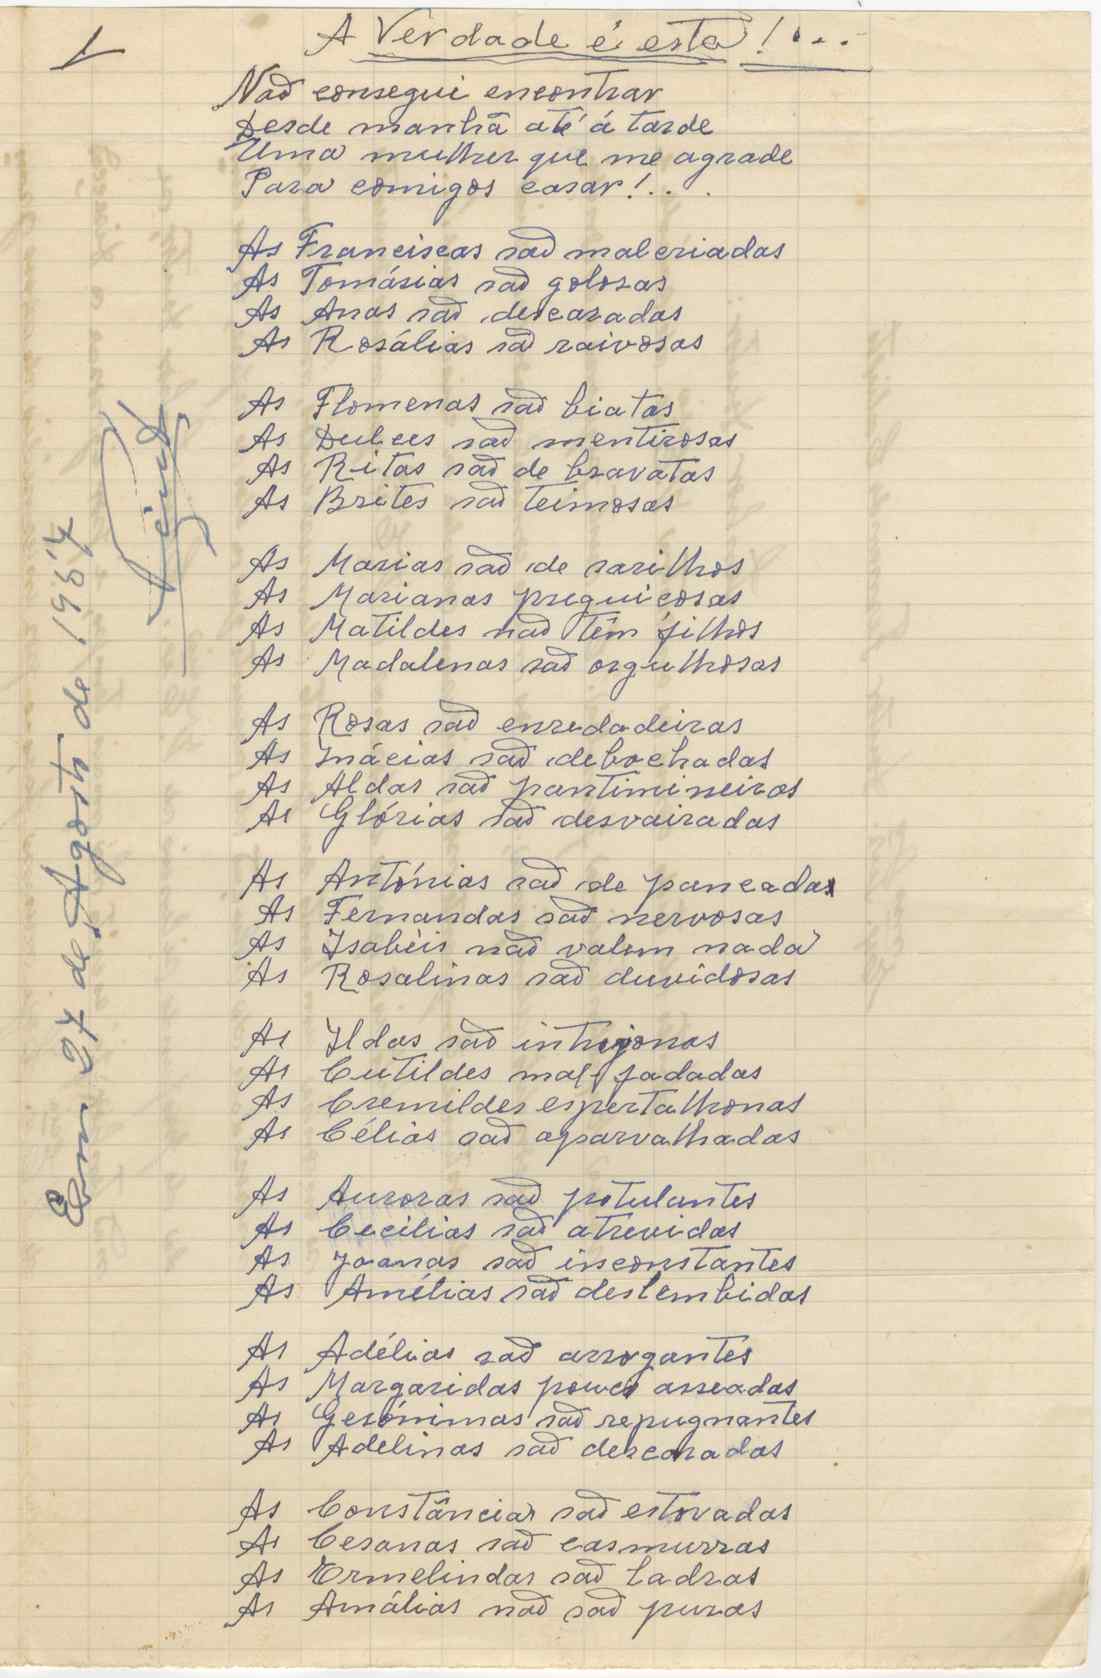 1
A Verdade é esta!...
Não consegui encontrar
Desde manhã até á tarde
Uma mulher que me agrade
Para comigos casar!...
As Franciscas são malcriadas
As Tomásias são golosas
As Anas são descaradas
As Rosálias são raivosas
As Flomenas são biatas
As Dulces são mentirosas
As Ritas são de bravatas
As Brites são teimosas
As Marias são de sarilhos
As Marianas preguiçosas
As Matildes não têm filhos
As Madalenas são orgulhosas
As Rosas são enredadeiras
As Inácias são debochadas
As Aldas são pantimineiras
As Glórias são desvairadas
As Antónias são de pancadas
As Fernandas são nervosas
As Isabéis não valem nada
As Rosalinas são duvidosas
As Ildas são intrijonas
As Cutildes mal fadadas
As Cremildes espertalhonas
As Célias são aparvalhadas
As Auroras são petulantes
As Cecilias são atrevidas
As Joanas são inconstantes
As Amélias são deslembidas
As Adélias são arrogantes
As Margaridas pouco asseadas
As Gerónimas são repugnantes
As Adelinas são descaradas
As Constâncias são estovadas
As Cesanas são casmurras
As Ermelindas são ladras
As Amálias não são puras
Em 27 de Agosto de 1987